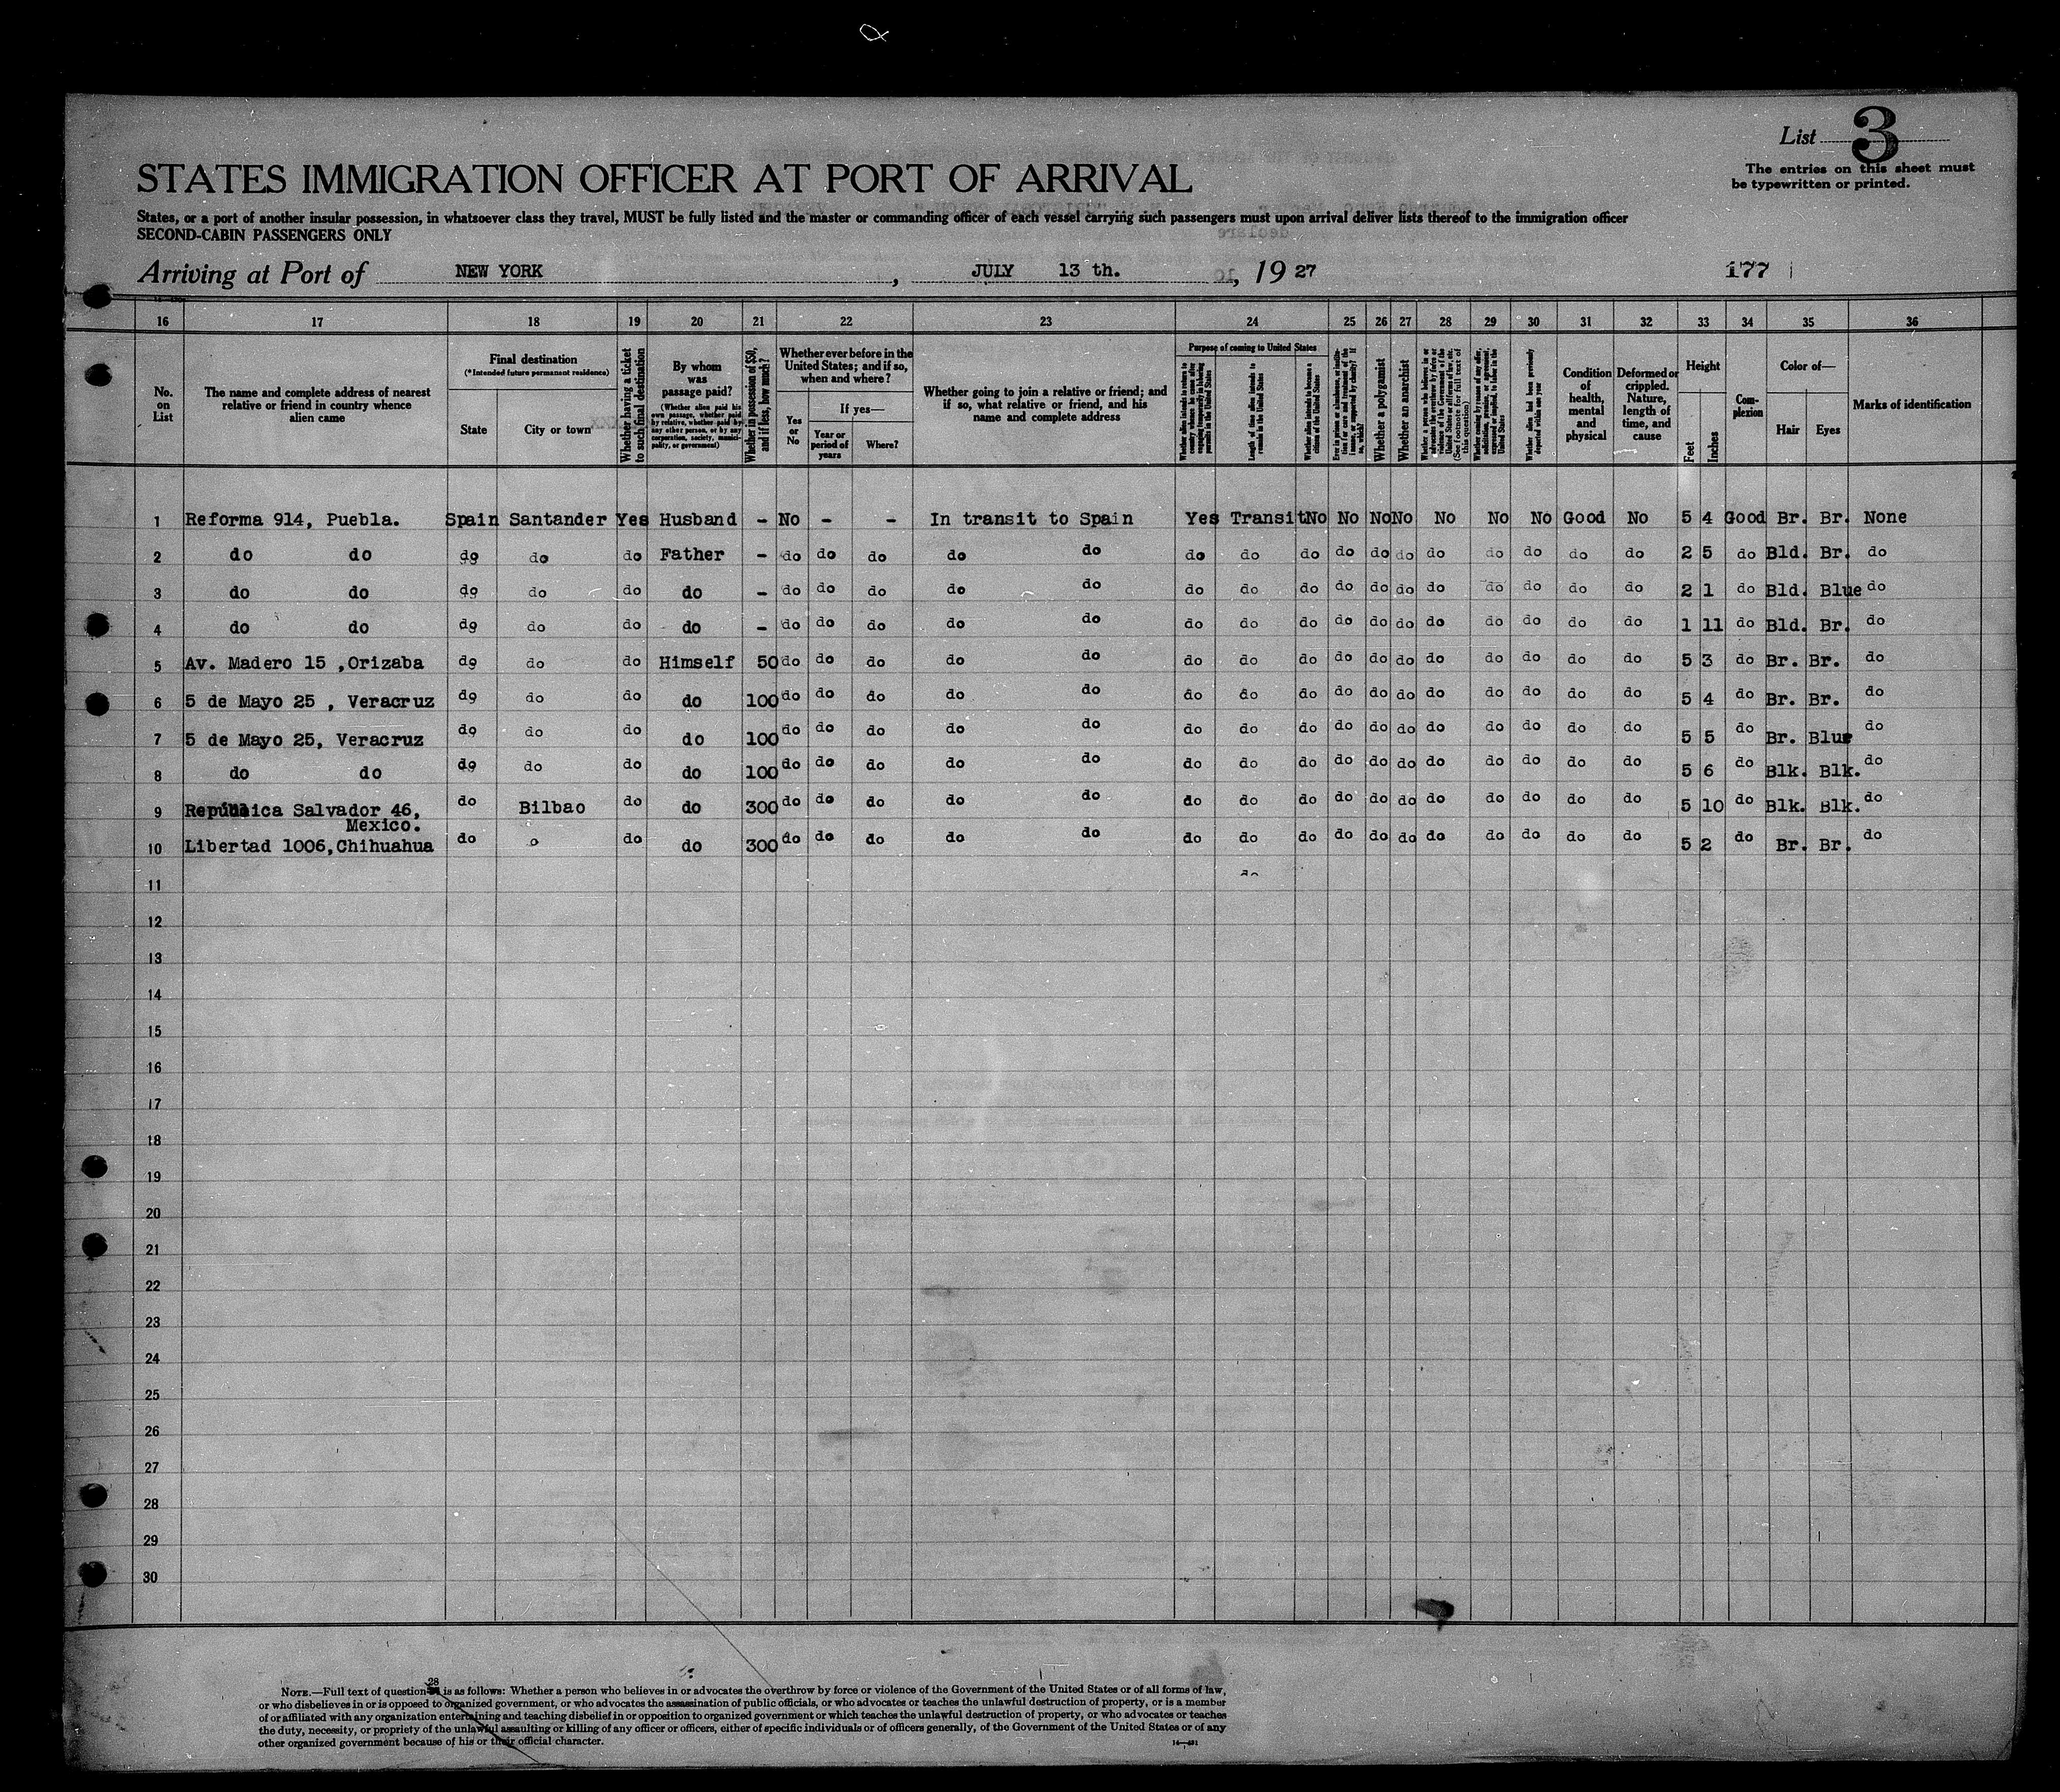 List 3
The entries on this sheet must
be typewritten or printed.
STATES IMMIGRATION OFFICER AT PORT OF ARRIVAL
States, or a port of another insular possession, in whatsoever class they travel, MUST be fully listed and the master or commanding officer of each vessel carrying such passengers must upon arrival deliver lists thereof to the immigration officer
SECOND-CABIN PASSENGERS ONLY
Arriving at Port of NEW YORK , JULY 13 th. , 19 27 177
16 17 18 19 20 21 22 23 24 25 26 27 28 29 30 31 32 33 34 35 36
No. on List
The name and complete address of nearest relative or friend in country whence alien came
Final destination
(*Intended future permanent residence)
State
City or town
Whether having a ticket to such final destination
By whom was passage paid?
(Whether alien paid his own passage, whether paid by relative, whether paid by any other person, or by any corporation, society, municipality, or government)
Whether in possession of $50, and if less, how much?
Whether ever before in the United States; and if so, when and where?
Yes or No
If yes—
Year or period of years
Where?
Whether going to join a relative or friend; and if so, what relative or friend, and his name and complete address
Purpose of coming to United States
Length of time alien intends to remain in the United States
Whether alien intends to become a citizen of the United States
Whether a polygamist
Whether an anarchist
Whether alien had been previously deported within one year
Condition of health, mental and physical
Deformed or crippled. Nature, length of time, and cause
Height
Feet
Inches
Complexion
Color of—
Hair
Eyes
Marks of identification
1 Reforma 914, Puebla. Spain Santander Yes Husband - No - - In transit to Spain Yes Transit No No No No No No No Good No 5 4 Good Br. Br. None
2 do do do do do Father - do do do do do do do do do do do do do do do do 2 5 do Bld. Br. do
3 do do do do do do - do do do do do do do do do do do do do do do do 2 1 do Bld. Blue do
4 do do do do do do - do do do do do do do do do do do do do do do do 1 11 do Bld. Br. do
5 Av. Madero 15 ,Orizaba do do do Himself 50 do do do do do do do do do do do do do do do do 5 3 do Br. Br. do
6 5 de Mayo 25 , Veracruz do do do do 100 do do do do do do do do do do do do do do do do 5 4 do Br. Br. do
7 5 de Mayo 25, Veracruz do do do do 100 do do do do do do do do do do do do do do do do 5 5 do Br. Blue do
8 do do do do do do 100 do do do do do do do do do do do do do do do do 5 6 do Blk. Blk. do
9 República Salvador 46, do Bilbao do do 300 do do do do do do do do do do do do do do do do 5 10 do Blk. Blk. do
Mexico.
10 Libertad 1006,Chihuahua do o do do 300 do do do do do do do do do do do do do do do do 5 2 do Br. Br. do
11
12
13
14
15
16
17
18
19
20
21
22
23
24
25
26
27
28
29
30
28
NOTE.—Full text of question is as follows: Whether a person who believes in or advocates the overthrow by force or violence of the Government of the United States or of all forms of law,
or who disbelieves in or is opposed to organized government, or who advocates the assassination of public officials, or who advocates or teaches the unlawful destruction of property, or is a member
of or affiliated with any organization entertaining and teaching disbelief in or opposition to organized government or which teaches the unlawful destruction of property, or who advocates or teaches
the duty, necessity, or propriety of the unlawful assaulting or killing of any officer or officers, either of specific individuals or of officers generally, of the Government of the United States or of any
other organized government because of his or their official character.